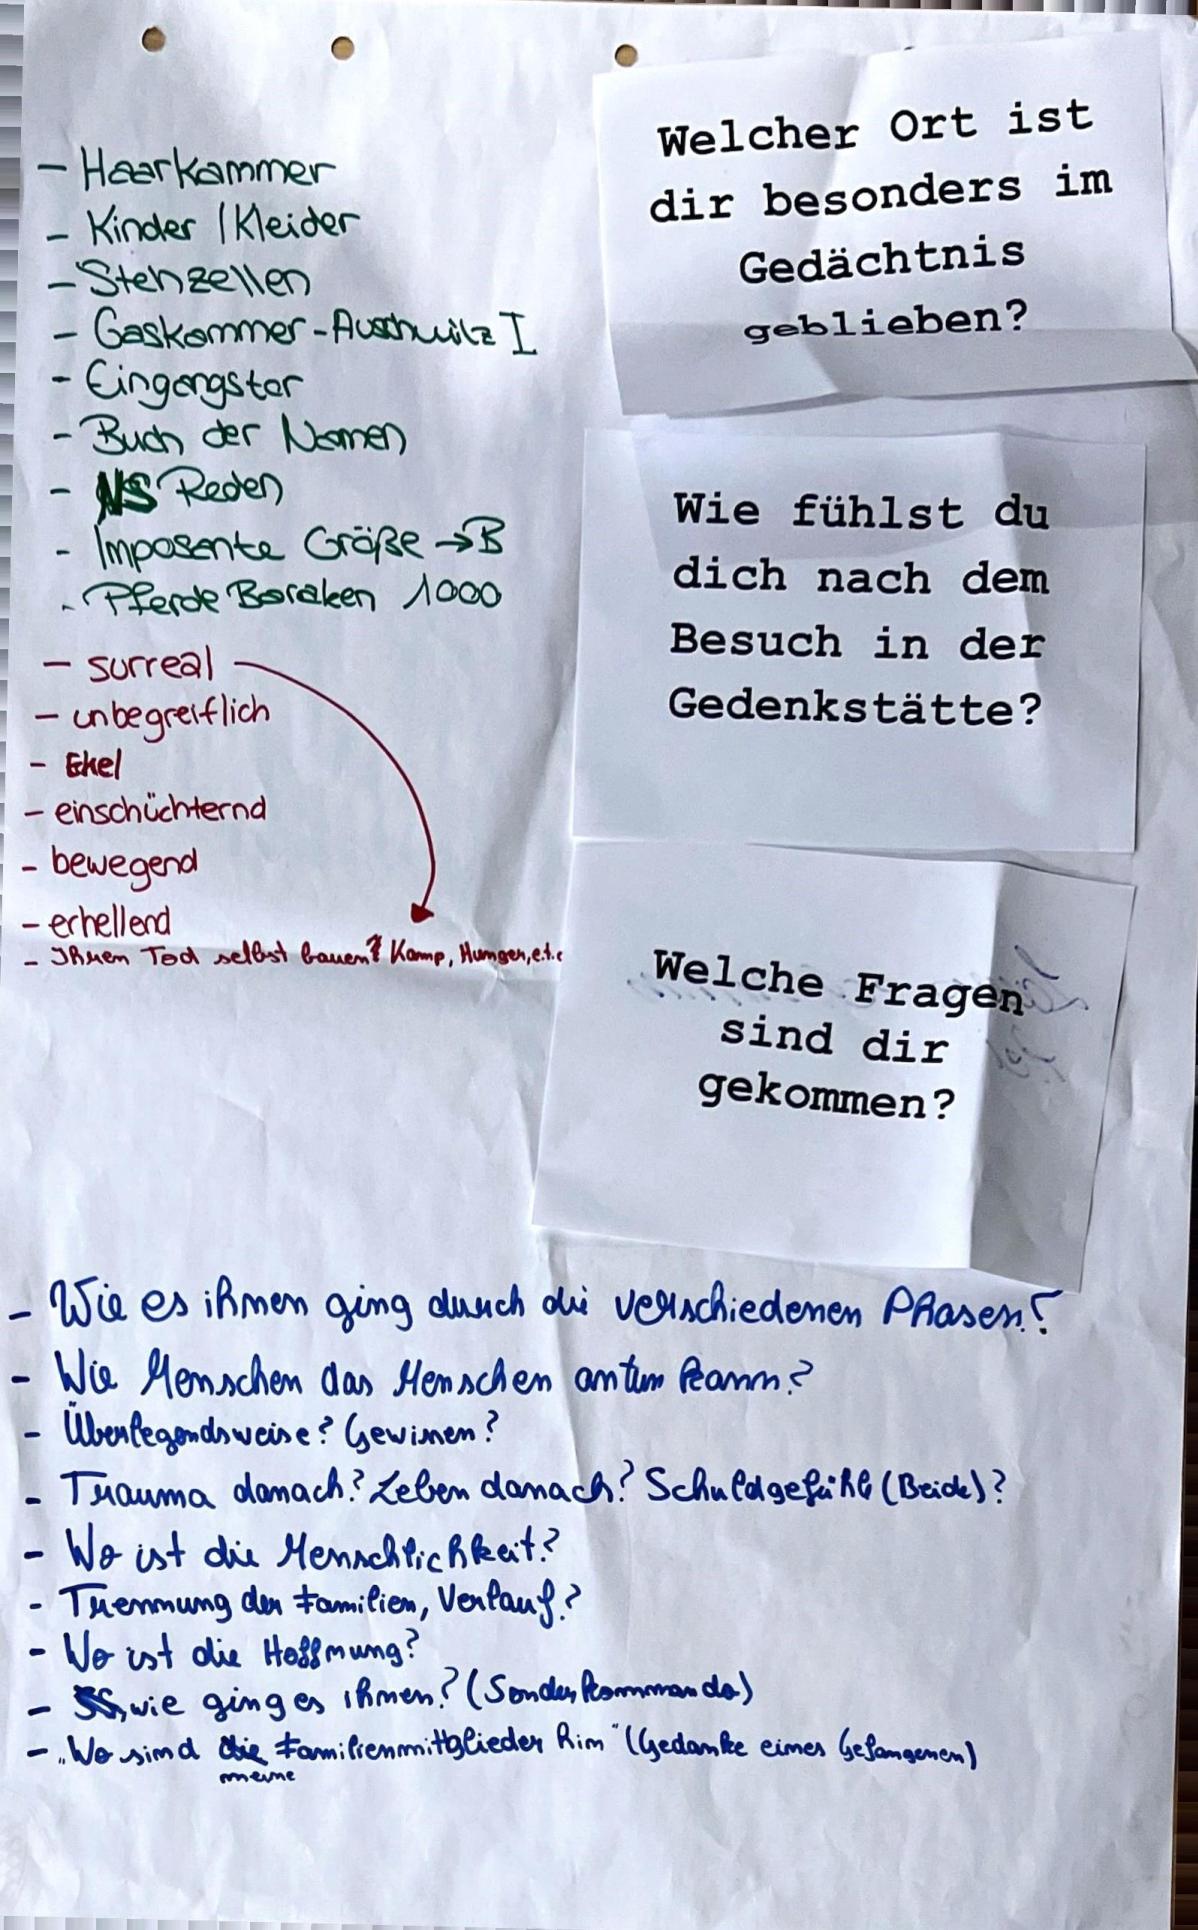 Welcher Ort ist
dir besonders im
Gedächtnis
geblieben?
- Haarkammer
- Kinder / Kleider
- Stehzellen
- Gaskammer - Auschwitz I
- Eingangstor
- Buch der Namen
- NS Reden
- Imposante Größe → B
- Pferde Baraken 1000
Wie fühlst du
dich nach dem
Besuch in der
Gedenkstätte?
- surreal
- unbegreiflich
- Ekel
- einschüchternd
- bewegend
- erhellend
- Ihren Tod selbst bauen? Kamp, Hunger, e.t.c
Welche Fragen
sind dir
gekommen?
- Wie es ihnen ging durch die verschiedenen Phasen?
- Wie Menschen das Menschen antun kann?
- Überlegendsweise? Gewinen?
- Trauma danach? Leben danach? Schuldgefühle (Beide)?
- Wo ist die Menschlichkeit?
- Trennung der Familien, Verlauf?
- Wo ist die Hoffnung?
- SS, wie ging es ihnen? (Sonderkommando)
- „Wo sind die Familienmittglieder hin" (Gedanke eines Gefangenen)
meine